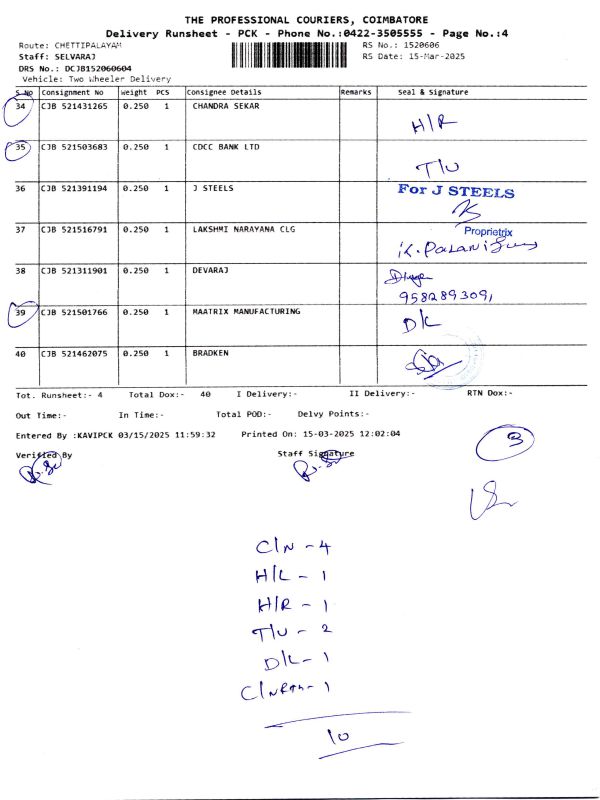 THE PROFESSIONAL COURIERS, COIMBATORE
Delivery Runsheet - PCK - Phone No.:0422-3505555 - Page No.:4
Route: CHETTIPALAYAM RS No.: 1520606
Staff: SELVARAJ RS Date: 15-Mar-2025
DRS No.: DCJB152060604
Vehicle: Two Wheeler Delivery
S No Consignment No Weight PCS Consignee Details Remarks Seal & Signature
34 CJB 521431265 0.250 1 CHANDRA SEKAR
H/R
35 CJB 521503683 0.250 1 CDCC BANK LTD
T/U
36 CJB 521391194 0.250 1 J STEELS For J STEELS
Proprietrix
37 CJB 521516791 0.250 1 LAKSHMI NARAYANA CLG
38 CJB 521311901 0.250 1 DEVARAJ
9582893091
39 CJB 521501766 0.250 1 MAATRIX MANUFACTURING
D/L
40 CJB 521462075 0.250 1 BRADKEN
Tot. Runsheet:- 4 Total Dox:- 40 I Delivery:- II Delivery:- RTN Dox:-
Out Time:- In Time:- Total POD:- Delvy Points:-
Entered By :KAVIPCK 03/15/2025 11:59:32 Printed On: 15-03-2025 12:02:04
3
Verified By Staff Signature
C/N - 4
H/L - 1
H/R - 1
T/U - 2
D/L - 1
- 1
10